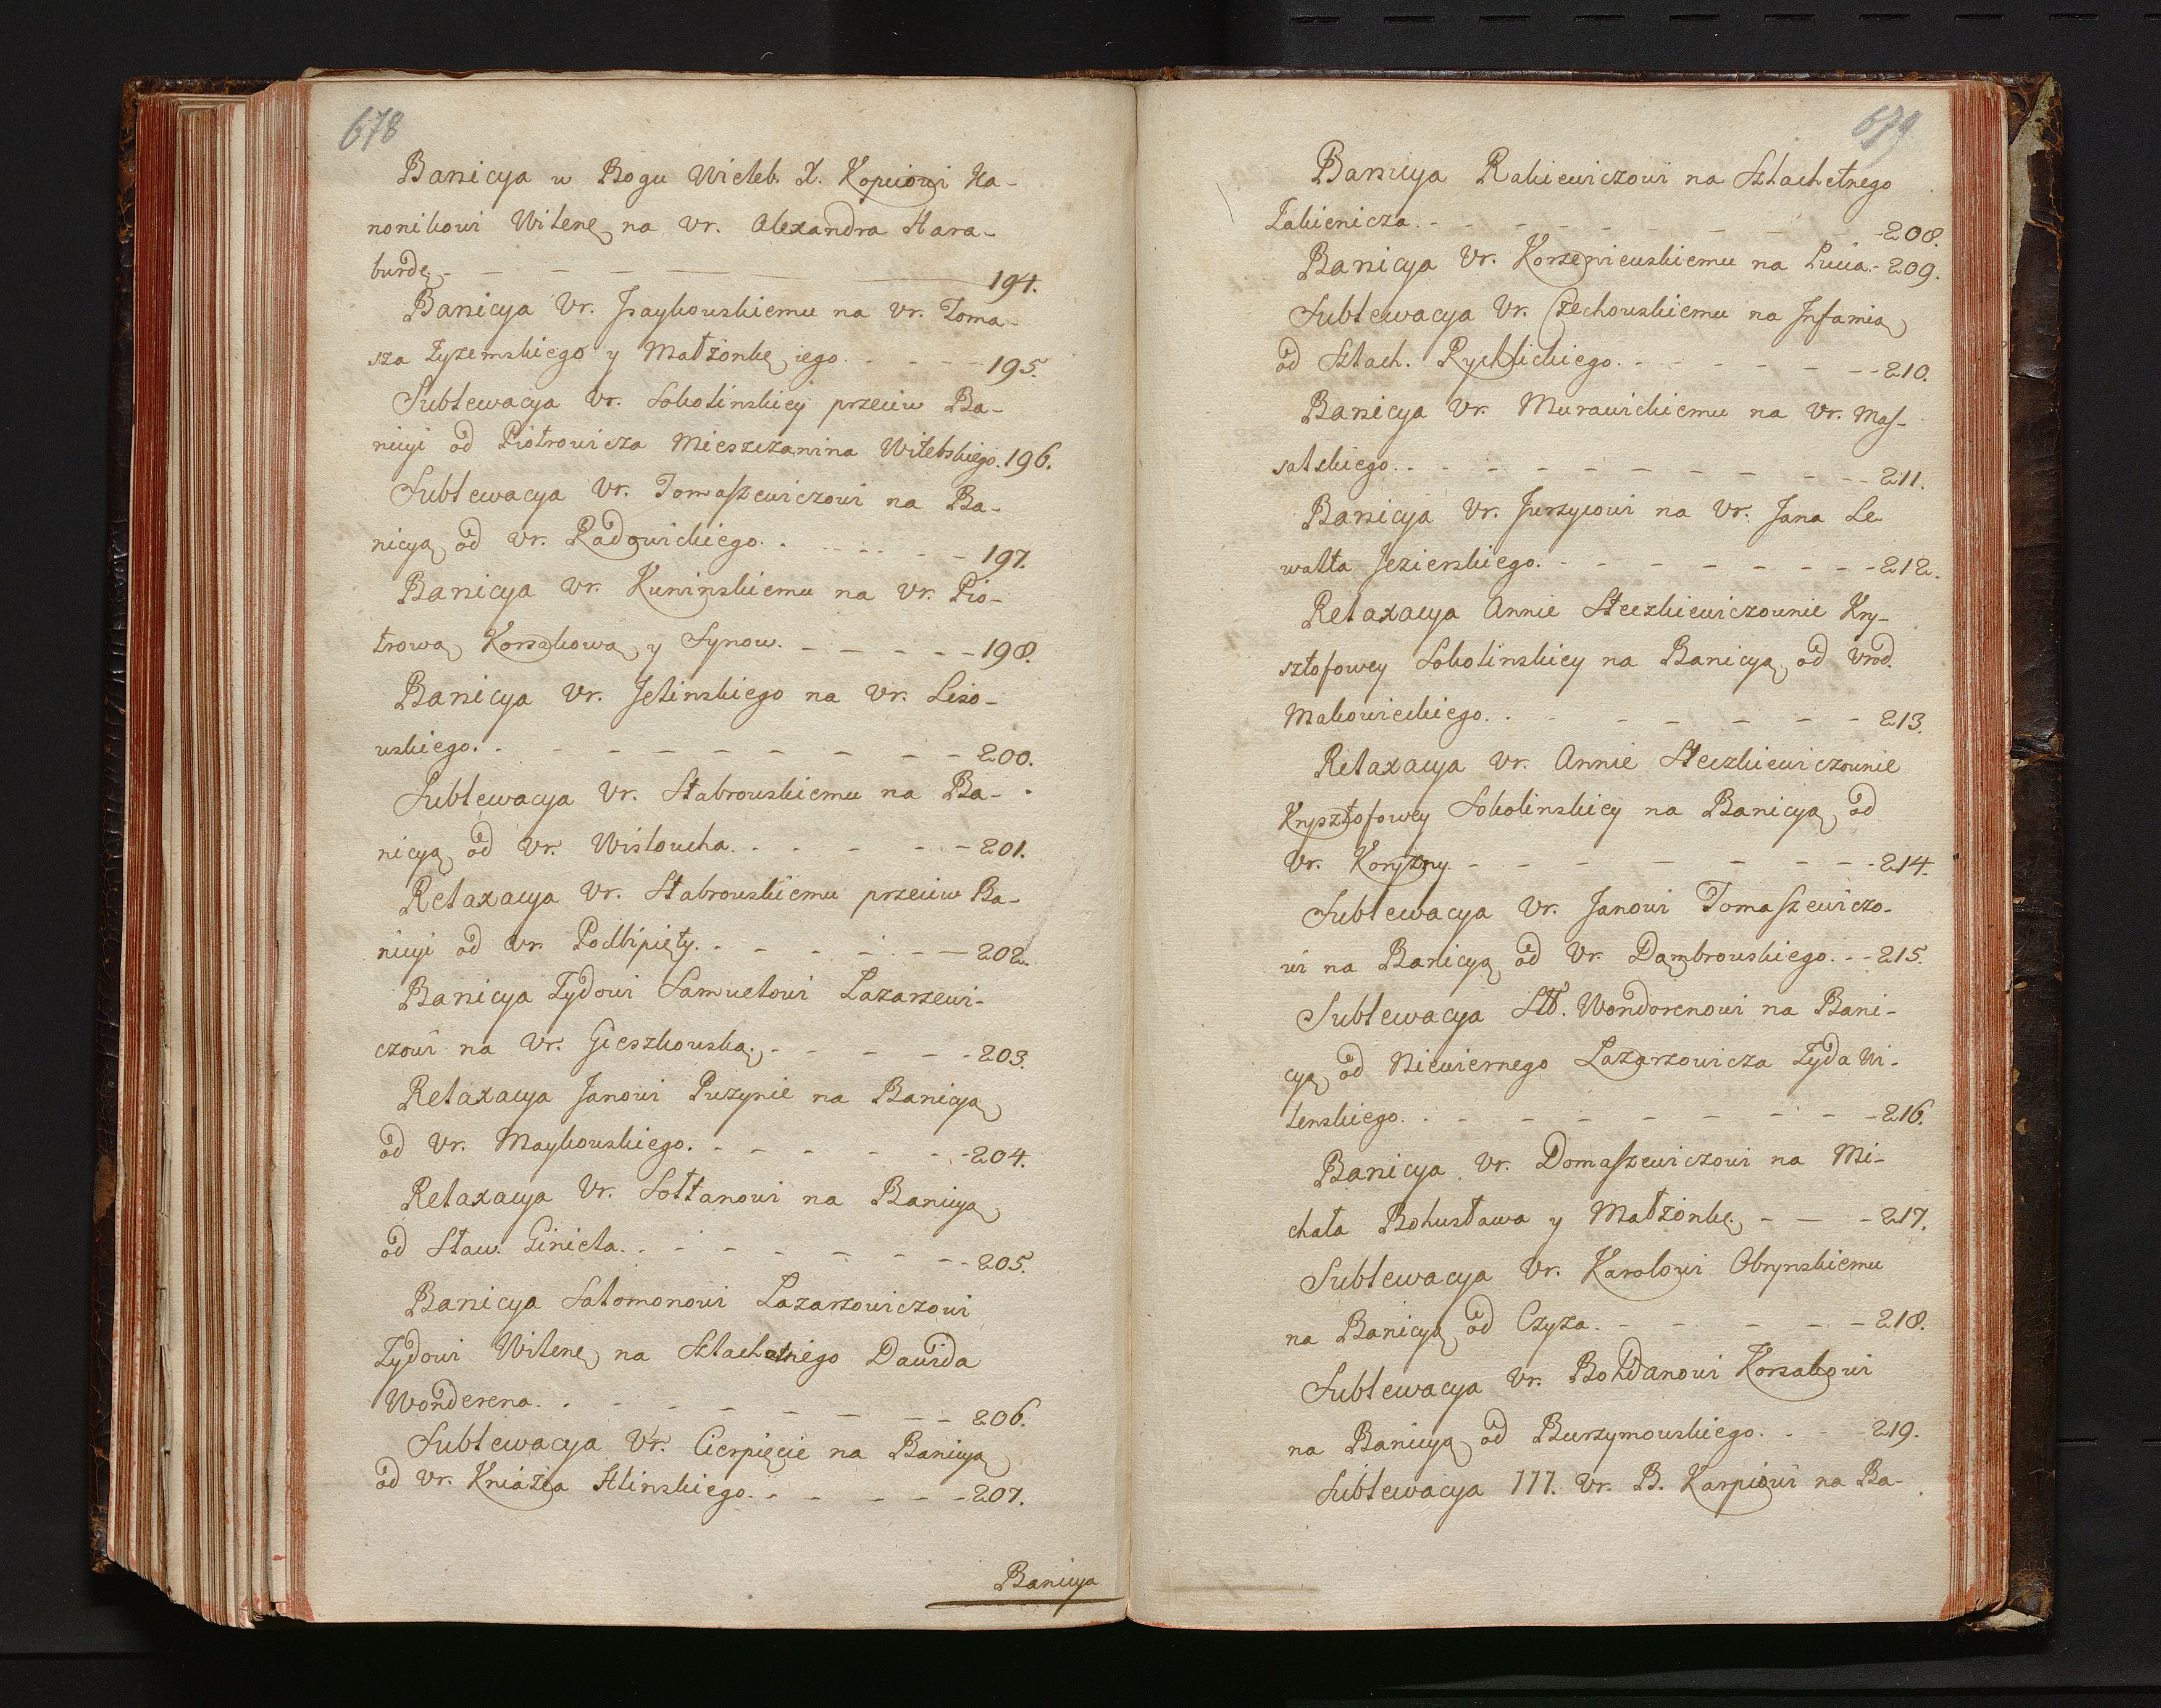 678
Banicya w Bogu Wieleb. X. Kopciowi Ka-
nonikowi Wilenę na Vr. Alexandra Hara-
burdę - - - - - 194.
Banicya Vr. Isaykowskiemu na Vr. Toma-
sza Zyzemskiego y Małżonkę iego. - - - - 195.
Sublewacya Vr. Sokolinskiey przeciw Ba-
nicyi od Piotrowicza Mieszczanina Witebskiego. 196.
Sublewacya Vr. Tomaszewiczowi na Ba-
nicyą od Vr. Radowickiego. - - - - - 197.
Banicya Vr. Kuninskiemu na Vr. Pio-
trową Korsakową y Synow. - - - - - 198.
Banicya Vr. Jelinskiego na Vr. Liso-
wskiego. - - - - - - - - - 200.
Sublewacya Vr. Stabrowskiemu na Ba-
nicyą od Vr. Wisłoucha. - - - - - 201.
Relaxacya Vr. Stabrowskiemu przeciw Ba-
nicyi od Vr. Podbipięty. - - - - - - 202.
Banicya Zydowi Samuelowi Lazarzewi-
czowi na Vr. Gieszkowską. - - - - - 203.
Relaxacya Janowi Puzynie na Banicyą
od Vr. Maykowskiego. - - - - - - 204.
Relaxacya Vr. Sołtanowi na Banicyą
od Sław. Ginieta. - - - - - - - - 205.
Banicya Salomonowi Lazarzowiczowi
Zydowi Wilenę na Szlachetnego Dawida
Wonderena. - - - - - - - - 206.
Sublewacya Vr. Cierpięcie na Banicyą
od Vr. Kniazia Hlinskiego. - - - - - 207.
Banicya
679
Banicya Rakiewiczowi na Szlachetnego
Zakienicza. - - - - - - - - - 208.
Banicya Vr. Korzeniewskiemu na Puciá. - 209.
Sublewacya Vr. Czechowskiemu na Infamią
od Szlach. Rychlickiego. - - - - - - - 210.
Banicya Vr. Murawickiemu na Vr. Mas-
salskiego. - - - - - - - - - - 211.
Banicya Vr. Jurzycowi na Vr. Jana Le
walta Jezierskiego. - - - - - - - - 212.
Relaxacya Annie Steczkiewiczownie Kry-
sztofowey Sokolinskiey na Banicyą od Vrod.
Makowieckiego. - - - - - - - 213.
Relaxacya Vr. Annie Steczkiewiczownie
Krysztofowey Sokolinskiey na Banicyą od
Vr. Koryzny. - - - - - - - - 214.
Sublewacya Vr. Janowi Tomaszewiczo-
wi na Banicyą od Vr. Dambrowskiego. - - 215.
Sublewacya Szl. Wondorenowi na Bani-
cyą od Niewiernego Lazarzowicza Zyda Wi-
lenskiego. - - - - - - - - - 216.
Banicya Vr. Domaszewiczowi na Mi-
chała Bohusława y Małżonkę. - - - 217.
Sublewacya Vr. Karolowi Obrynskiemu
na Banicyą od Czyza. - - - - - - 218.
Sublewacya Vr. Bohdanowi Korsakowi
na Banicyą od Burzymowskiego. - - - 219.
Sublewacya 177. Vr. B. Karpiowi na Ba-